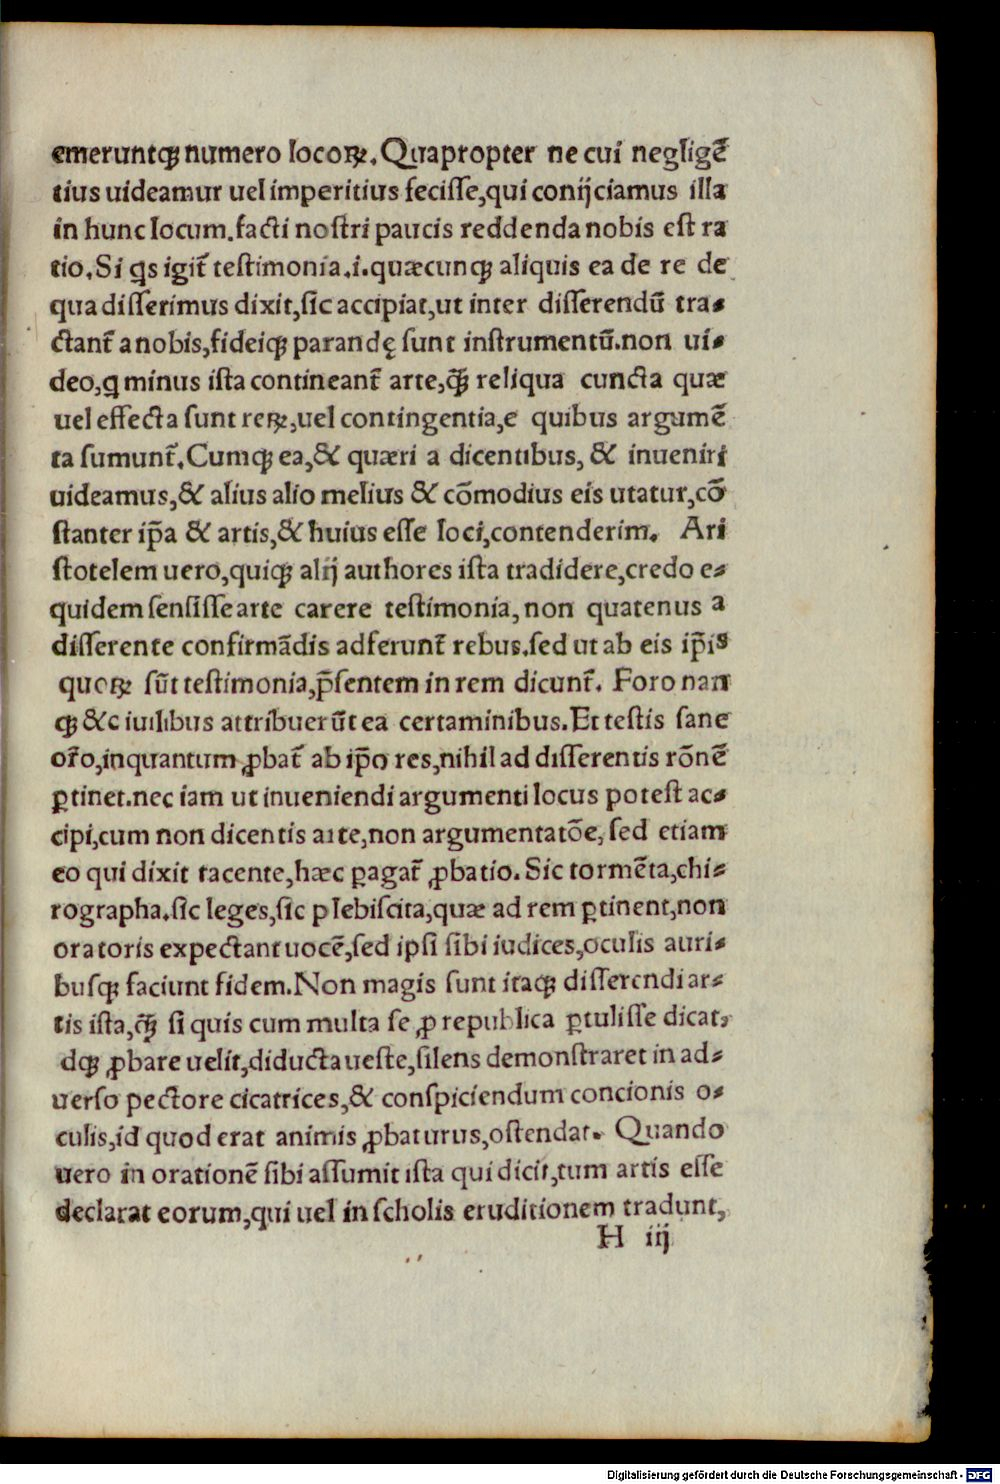 emeruntq̃ numero locoꝝ. Quapropter ne cui negligẽ
tius uideamur uel imperitius fecisse,qui conijciamus illa
in hunc locum.facti nostri paucis reddenda nobis est ra
tio.Si qs igit̃ testimonia.i.quæcunqꝫ aliquis ea de re de
qua disserimus dixit,sic accipiat,ut inter disserendũ tra-
ctant̃ a nobis,fideiqꝫ parandę sunt instrumentũ.non ui-
deo,q̱ minus ista contineant̃ arte,q̃ꝫ reliqua cuncta quæ
uel effecta sunt reꝝ,uel contingentia,e quibus argumẽ
ta sumunt̃.Cumqꝫ ea,& quæri a dicentibus, & inueniri
uideamus,& alius alio melius & cõmodius eis utatur,cõ
stanter ip̃a & artis,& huius esse loci,contenderim. Ari
stotelem uero,quiqꝫ alij authores ista tradidere,credo e-
quidem sensisse arte carere testimonia, non quatenus a
disserente confirmãdis adferunt̃ rebus.sed ut ab eis ip̃is
quoꝝ sũt testimonia,p̃sentem in rem dicunt̃. Foro nan
qꝫ &c iuilibus attribuerũt ea certaminibus.Et testis sane
or̃o,inquantum ꝓbat̃ ab ip̃o res,nihil ad disserentis rõnẽ
ꝑtinet.nec iam ut inueniendi argumenti locus potest ac-
cipi,cum non dicentis arte,non argumentatõe, sed etiam
eo qui dixit tacente,hæc ꝑagat̃ ꝓbatio.Sic tormẽta,chi-
rographa.sic leges,sic plebiscita,quæ ad rem ꝑtinent,non
oratoris expectant uocẽ,sed ipsi sibi iudices,oculis auri-
busqꝫ faciunt fidem.Non magis sunt itaqꝫ disserendi ar-
tis ista,q̃ꝫ si quis cum multa se ꝓ republica ꝑtulisse dicat,
dqꝫ ꝓbare uelit,diducta ueste,silens demonstraret in ad-
uerso pectore cicatrices,& conspiciendum concionis o-
culis,id quod erat animis ꝓbaturus,ostendat. Quando
uero in orationẽ sibi assumit ista qui dicit,tum artis esse
declarat eorum,qui uel in scholis eruditionem tradunt,
H iij
Digitalisierung gefördert durch die Deutsche Forschungsgemeinschaft - DFG